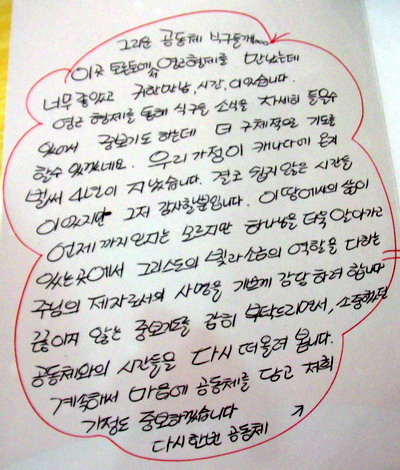 그리운 공동체 식구들께...
이곳 토론토에서 영근형제를 만났는데
너무 좋았고 귀한 만남, 시간, 이었습니다.
영근 형제를 통해 식구들 소식을 자세히 들을수
있어서 중보기도 하는데 더 구체적으로 기도를
할수 있겠네요. 우리 가정이 캐나다에 온지
벌써 4년이 지났습니다. 결코 쉽지 않은 시간들
이었지만 그저 감사할뿐입니다. 이땅에서의 삶이
언제 까지인지는 모르지만 하나님을 더욱 알아가고
있는곳에서 그리스도의 빛과소금의 역할을 다하는
주님의 제자로서의 사명을 기쁘게 감당하려 합니다
끊이지 않는 중보기도를 감히 부탁드리면서, 소중했던
공동체와의 시간들을 다시 떠올려 봅니다.
계속해서 마음에 공동체를 담고 저희
가정도 중보하겠습니다
다시한번 공동체